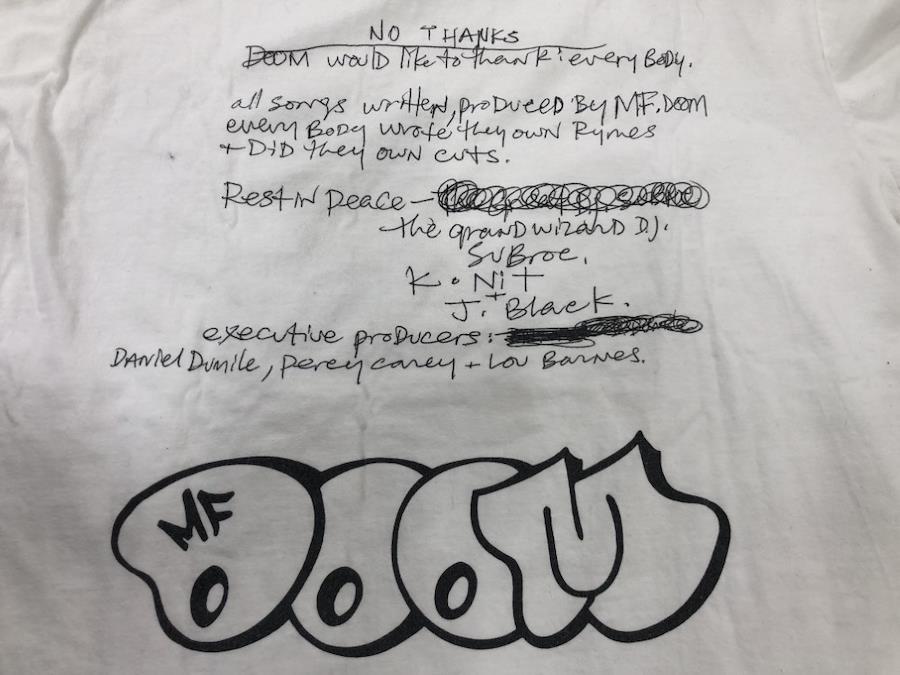 NO THANKS
DOOM would like to thank: every Body.
all songs written, proDuceD By MF. Doom
every BoDy wrote they own Rymes
+ DiD they own cuts.
Rest iN peace -
- the granD wizarD D.J.
SuBroc.
K. Nit
+
J. Black.
executive proDucers:
DANiel Dumile, percy carey + Lou Barnes.
MF
DOOM